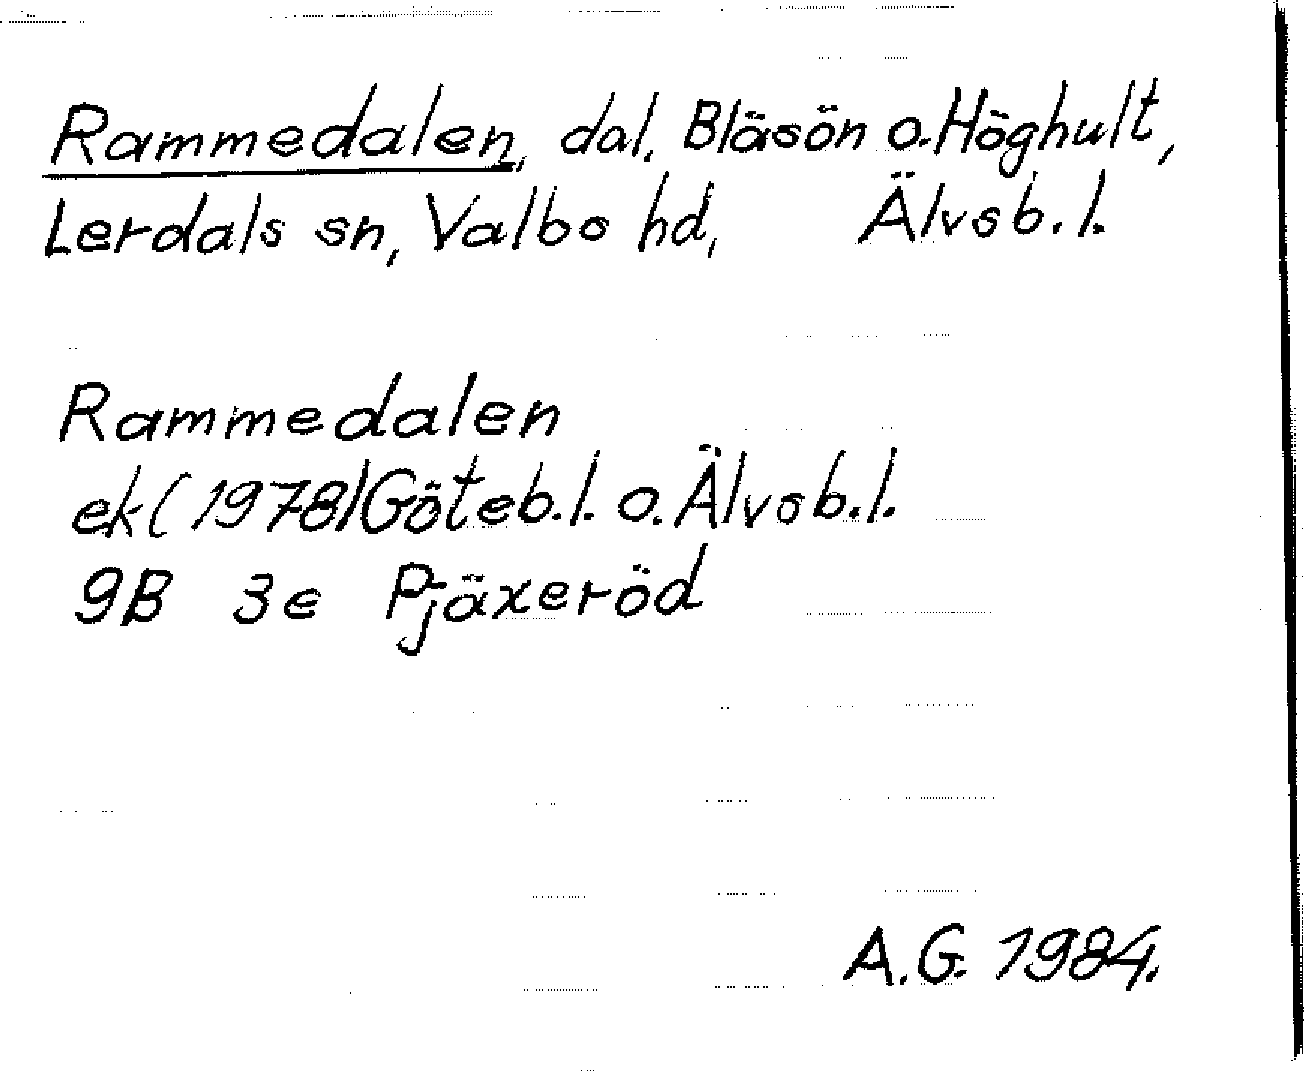 Rammedalen, dal, Bläsön o. Höghult,
Lerdals sn, Valbo hd, Älvsb. l.
Rammedalen
ek (1978) Göteb. l. o. Älvsb. l.
9B 3e Pjäxeröd
A.G. 1984.